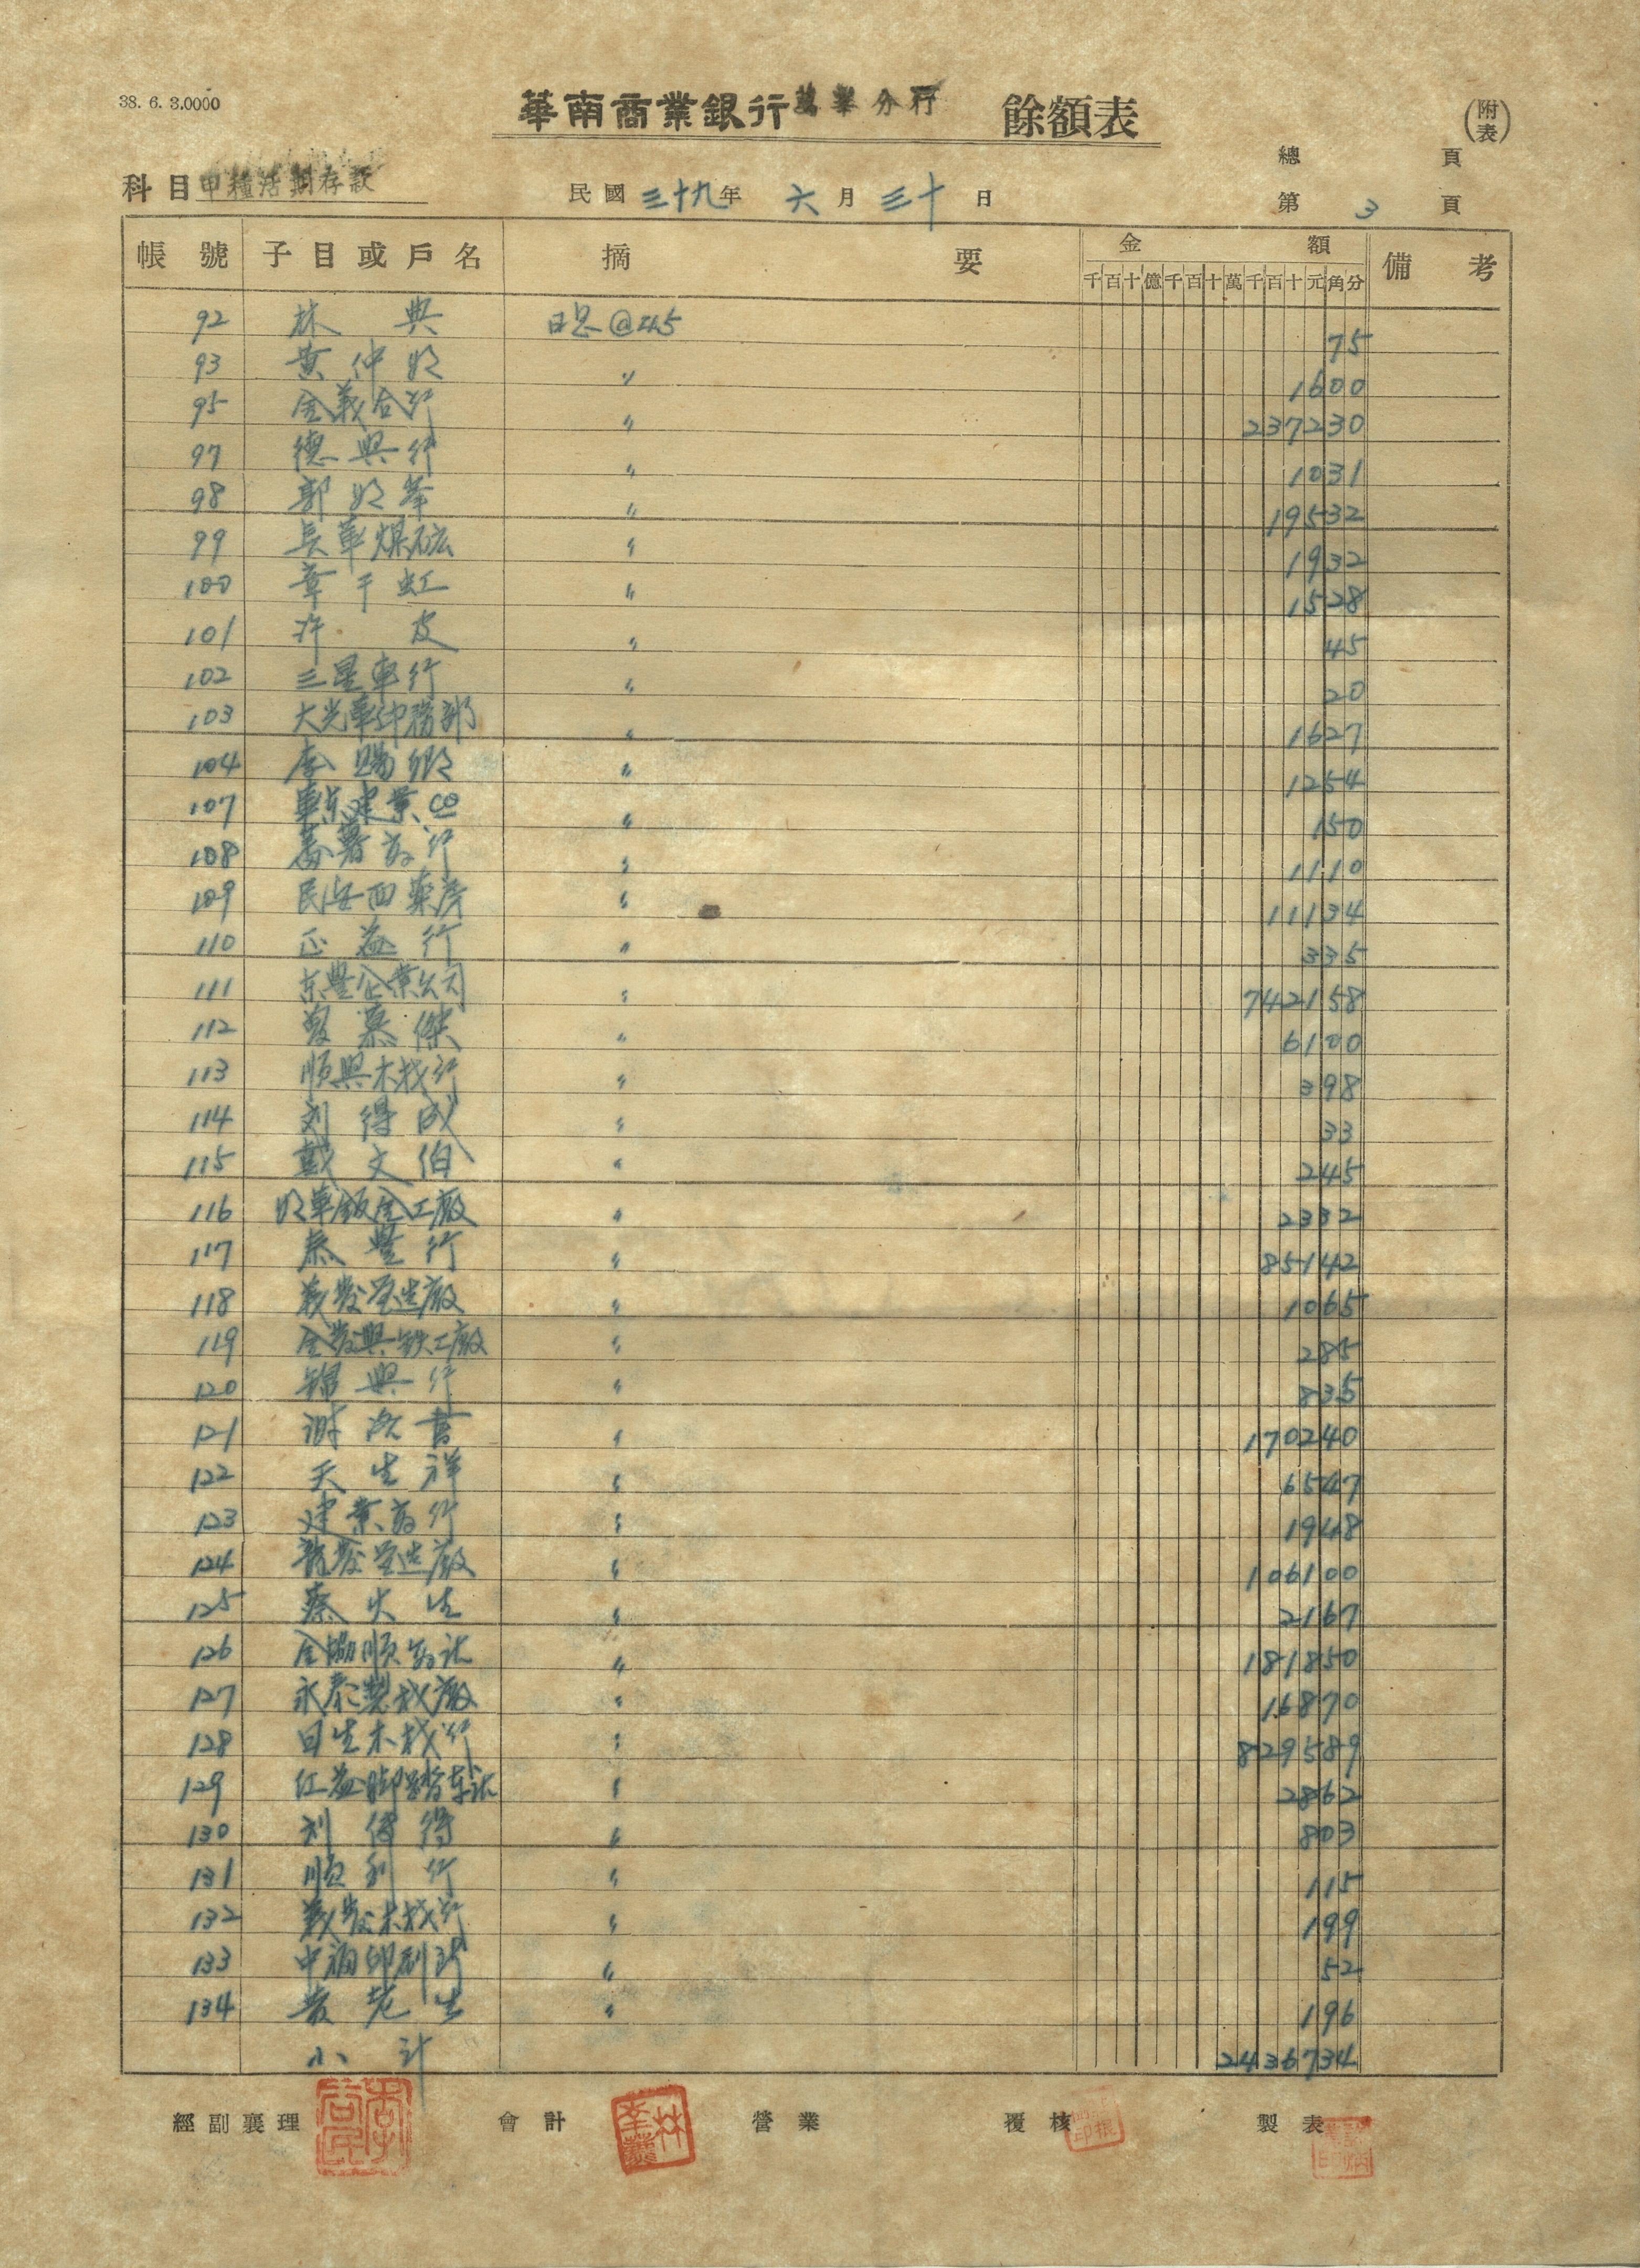 38. 6. 3.0000
華南商業銀行萬華分行 餘額表
(附表)
總 頁
科目 甲種活期存款 民國 三十九年 六月 三十日 第 3 頁
帳號 子目或戶名 摘要 金額 備考
千百十億千百十萬千百十元角分
92 林典 日息@2.45 75
93 黃仲明 〃 1600
95 金義合行 〃 237230
97 德興行 〃 1031
98 郭明峯 〃 19532
99 長華煤磁 〃 1932
100 章干虹 〃 1528
101 許皮 〃 45
102 三星車行 〃 20
103 大光華印務部 〃 1627
104 李賜卿 〃 1254
107 華东建業公司 〃 150
108 蕃薯商行 〃 1110
109 民安西藥房 〃 11134
110 正益行 〃 335
111 东豐企業公司 〃 742158
112 曾慕傑 〃 6100
113 順興木材行 〃 398
114 刘得成 〃 33
115 戴文伯 〃 245
116 明華鈑金工廠 〃 2332
117 泰豐行 〃 85142
118 義發營造廠 〃 1065
119 金發興鉄工廠 〃 285
120 錦興行 〃 835
121 謝啟書 〃 170240
122 天生祥 〃 6547
123 建業商行 〃 1948
124 龍發營造廠 〃 106100
125 蔡火生 〃 2167
126 金協順商社 〃 181850
127 永泰製材廠 〃 16870
128 日生木材行 〃 829589
129 红益脚踏车社 〃 2862
130 刘傳得 〃 803
131 順利行 〃 115
132 義發木材行 〃 199
133 中福印刷所 〃 52
134 黃荖生 〃 196
小計 2436734
經副襄理 會計 營業 覆核 製表